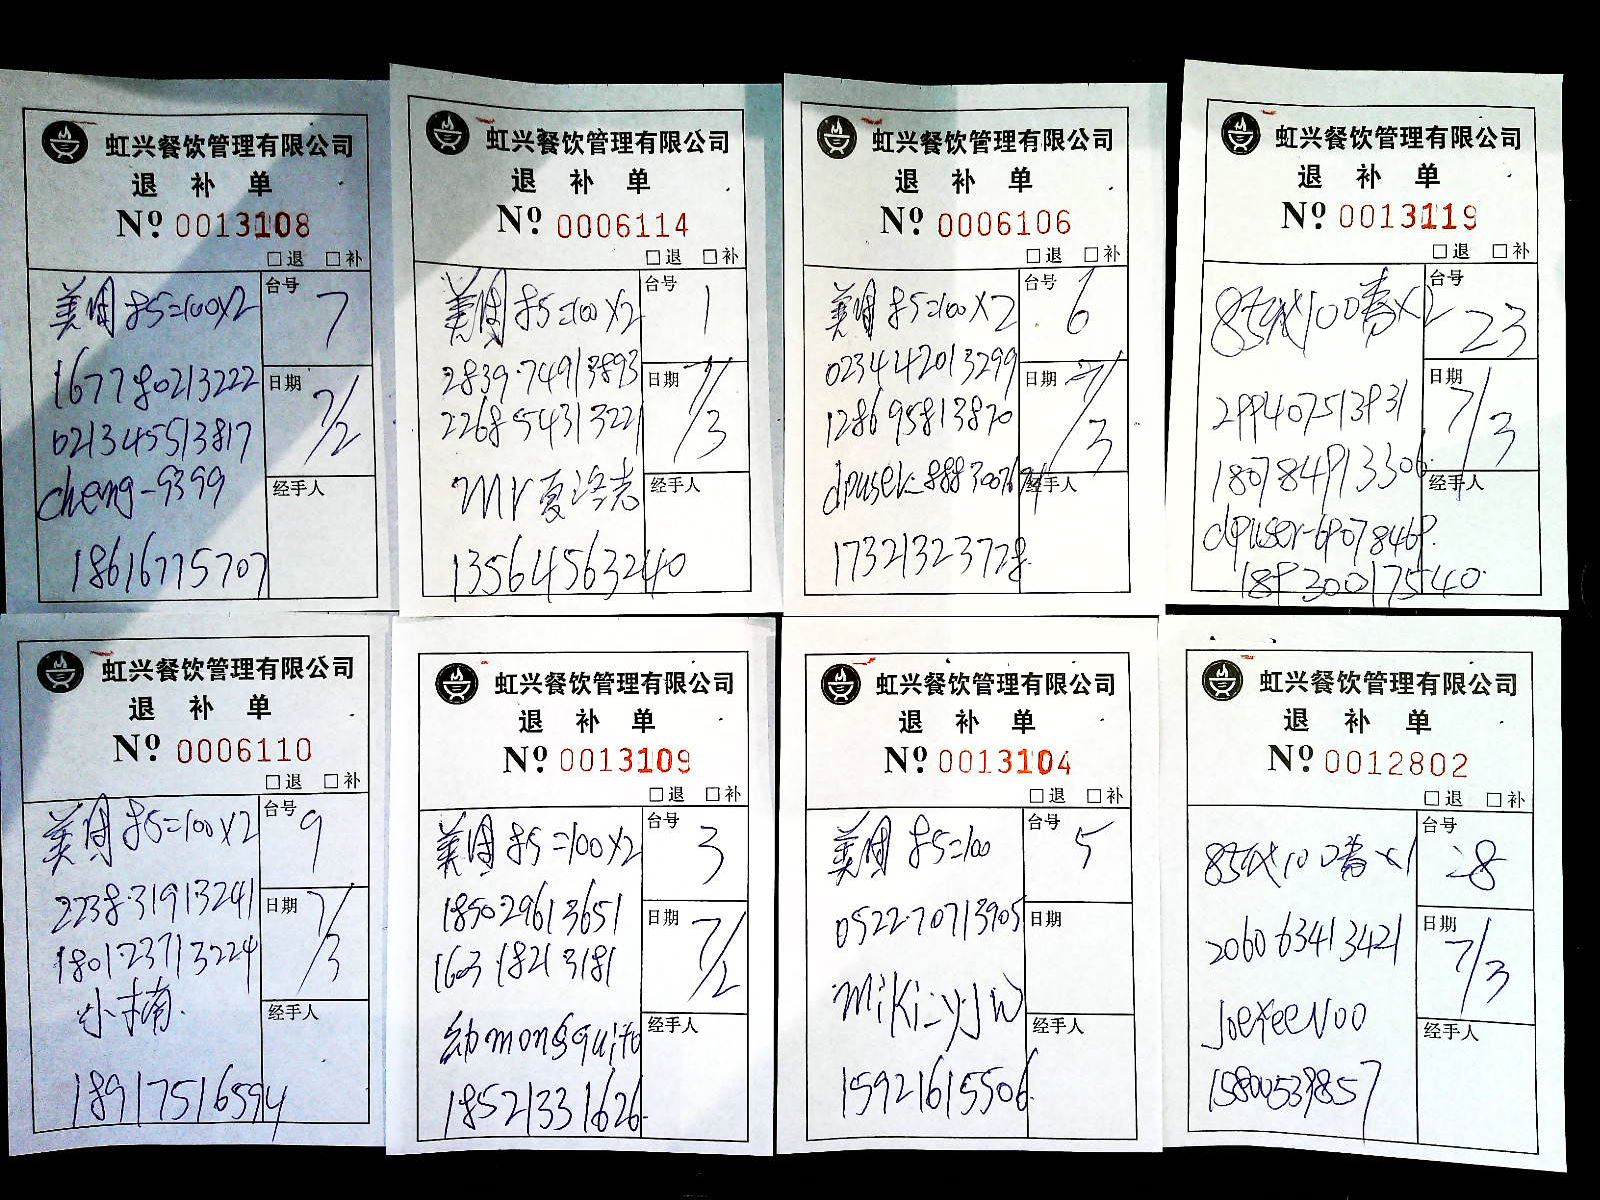 虹兴餐饮管理有限公司
退 补 单
№ 0013108
□退 □补
美团 85=100×2
台号
7
167780213222
021345513817
日期
7/2
cheng-9399
经手人
18616775707
虹兴餐饮管理有限公司
退 补 单
№ 0006114
□退 □补
美团 85=100×2
台号
1
283974913893
226854313221
日期
7/3
Mr夏
经手人
13564563240
虹兴餐饮管理有限公司
退 补 单
№ 0006106
□退 □补
美团 85=100×2
台号
6
023442013299
128695813870
日期
7/3
经手人
17321323728
虹兴餐饮管理有限公司
退 补 单
№ 0013119
□退 □补
85代100券×2
台号
23
299407513931
180784913306
日期
7/3
dpuser-69078469
经手人
18930017540
虹兴餐饮管理有限公司
退 补 单
№ 0006110
□退 □补
美团 85=100×2
台号
9
223831913241
180123713224
日期
7/3
小楠
经手人
18917516594
虹兴餐饮管理有限公司
退 补 单
№ 0013109
□退 □补
美团 85=100×2
台号
3
185029613651
160318213181
日期
7/2
经手人
18521331626
虹兴餐饮管理有限公司
退 补 单
№ 0013104
□退 □补
美团 85=100
台号
5
052270713905
日期
miki-yjw
经手人
15921615506
虹兴餐饮管理有限公司
退 补 单
№ 0012802
□退 □补
85代100券×1
台号
28
206063413421
日期
7/3
JoeyeeNoo
经手人
15800539857